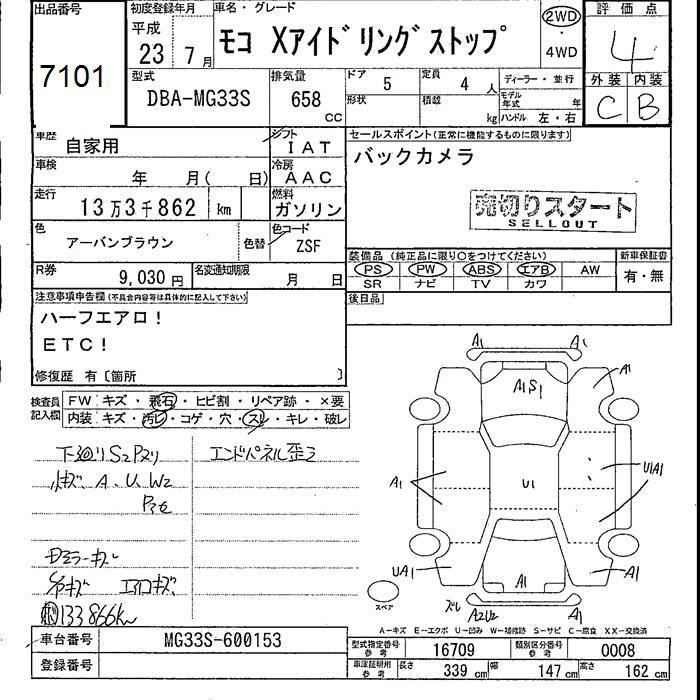 出品番号
7101
初度登録年月
平成
23 7月
車名・グレード
モコ Xアイドリングストップ
2WD
・
4WD
評価点
4
外装 内装
C B
型式
DBA-MG33S
排気量
658 cc
ドア 5
定員 4 人
形状
積載 kg
ディーラー・並行
モデル年式 年
ハンドル 左・右
車歴 自家用
シフト IAT
車検 年 月( 日)
冷房 AAC
走行 13万3千862 km
燃料 ガソリン
色 アーバンブラウン
色替
色コード ZSF
R券 9,030円
名変通知期限 月 日
セールスポイント(正常に機能するものに限ります)
バックカメラ
売切りスタート
SELLOUT
装備品(純正品に限り○をつけてください)
PS PW ABS エアB AW
SR ナビ TV カワ
新車保証書
有・無
後日品
注意事項申告欄(不具合内容等は具体的に記入して下さい)
ハーフエアロ!
ETC!
修復歴 有〔箇所 〕
検査員記入欄
FW キズ・飛石・ヒビ割・リペア跡・×要
内装 キズ・汚レ・コゲ・穴・スレ・キレ・破レ
下廻りS2Pスリ
エンドパネル歪ミ
小キズ、A、U、W2
Dミラーキズ
エアロキズ
133866km
A1 A1
A1S1
A1
A1
U1
U1A1
UA1
A1
A1
スペア
ズレ
A2U2
A1
A-キズ E-エクボ U-凹み W-補修跡 S-サビ C-腐食 XX-交換済
車台番号 MG33S-600153
登録番号
型式指定番号 参考 16709
類別区分番号 参考 0008
車庫証明用 参考 長さ 339 cm 幅 147 cm 高さ 162 cm